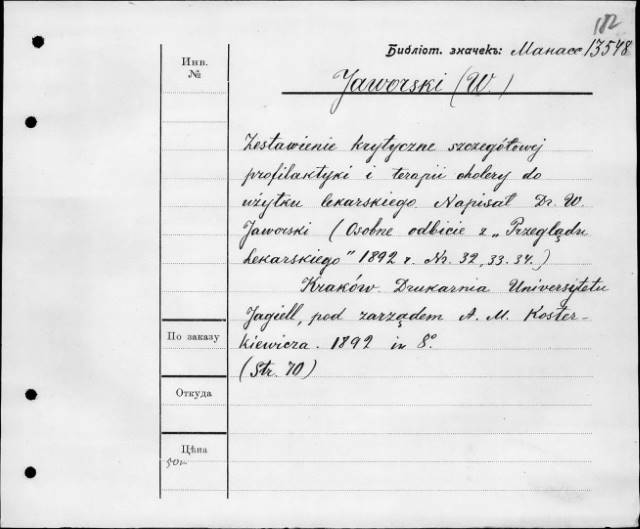 112
Библіот. значекъ: Манасс 13548
Инв.
№
Jaworski (W.)
Zestawienie krytyczne szczegółowej
profilaktyki i terapii cholery do
użytku lekarskiego. Napisał Dr. W.
Jaworski (Osobne odbicie z „Przeglądu
Lekarskiego" 1892 r. Nr. 32, 33. 34.)
Kraków. Drukarnia Uniwersytetu
Jagiell, pod zarządem A. M. Koster-
kiewicza. 1892 in 8°.
(Str. 70)
По заказу
Откуда
Цѣна